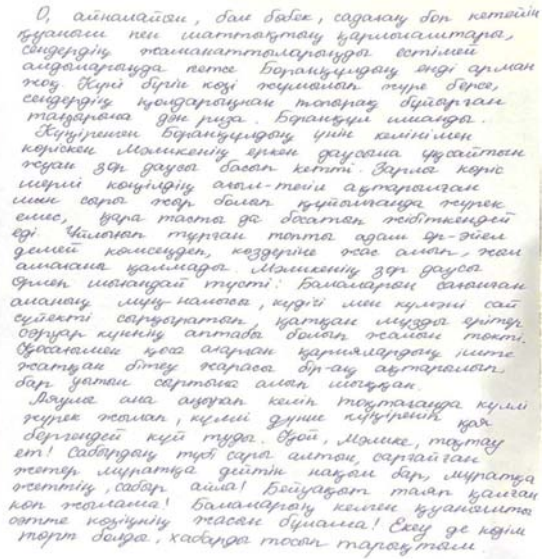 О, айналайын, бал бөбек, садағаң боп кетейін
қуаныш пен шаттықтың қарлығаштары,
сендердің жаманаттыларыңды естімей
алдыларыңда кетсе Боранқұлдың енді арман
жоқ. Күні бүгін көзі жұмылып жүре берсе,
сендердің қолдарыңнан топырақ бұйырған
тағдырына дән риза. Боранқұл иманды.
Күңіренген Боранқұлдың үнін келінімен
көріскен Мәликенің еркек даусына ұқсайтын
жуан зор даусы басып кетті. Зарлы көріс
шерлі көңілдің ағыл-тегіл ақтарылған
мұң сыры жыр болып құйылғанда жүрек
емес, қара тасты да босатып жібіткендей
еді. Ұйлығып тұрған топты адам ер-әйел
демей кемсеңдеп, көздеріне жас алып, жыл
амағаны қалмады. Мәликенің зор даусы
өрлеп шығандай түсті. Балаларын сағынған
ананың мұң-наласы, күдігі мен күмәні сай
сүйекті сырқыратып, қатқан мұзды ерітер
сәуір күннің аптабы болып жалын төкті.
Қосағымен қоса ағарған қариялардың іште
жатқан бітеу жарасы бір-ақ ақтарылып,
бар уытын сыртына алып шыққан.
Аяулы ана аңырап келіп тоқтағанда күллі
жүрек жылап, күллі дүние күңіреніп қоя
бергендей күй туды. Қой, Мәлике, тоқтау
ет! Сабырдың түбі сары алтын, сарғайған
жетер мұратқа дейтін нақыл бар, мұратқа
жеттің, сабыр айла! Бейуақыт таяп қалған
көп жылама! Балаларың келген қуанышты
сәтте көзіңнің жасын бұлама! Екеу де кәдім
төрт болды, хабарды тосып тарықтым